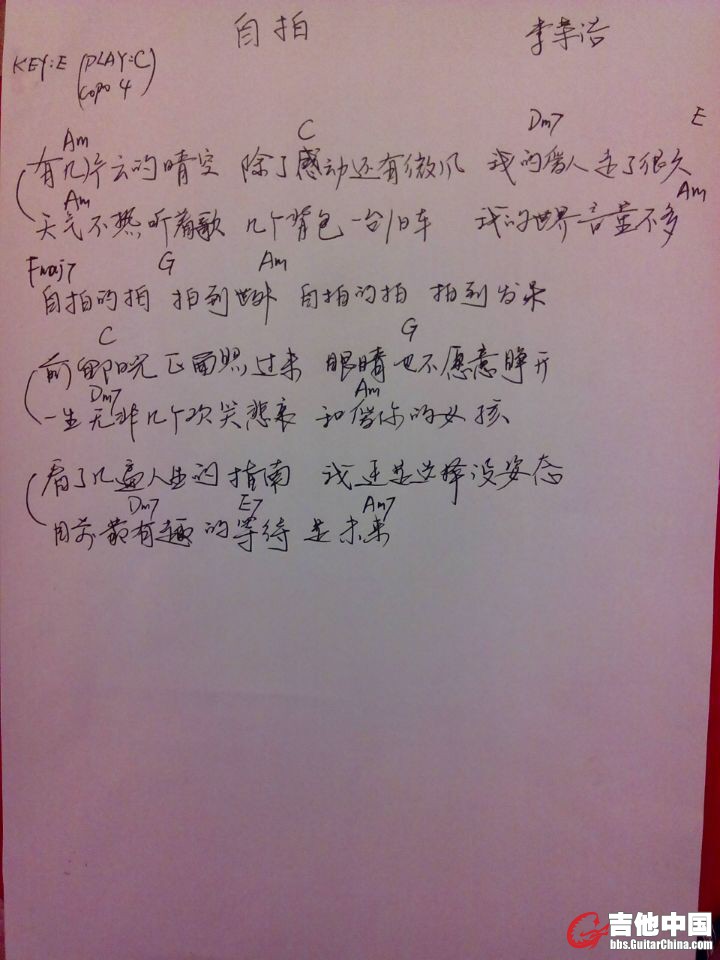 自拍 李荣浩
KEY:E (PLAY:C)
Capo 4
Am C Dm7 E
有几片云的晴空 除了感动还有微风 我的爱人走了很久
Am Am
天气不热听着歌 几个背包一台旧车 我的世界言量不多
Fmaj7 G Am
自拍的拍 拍到世外 自拍的拍 拍到发呆
C G
前 正面照过来 眼睛也不愿意睁开
Dm7 Am
一生无非几个欢笑悲哀 和 你的女孩
看了几遍人生的指南 我还是选择没姿态
Dm7 E7 Am7
目前最有趣的等待是未来
吉他中国
bbs.GuitarChina.com